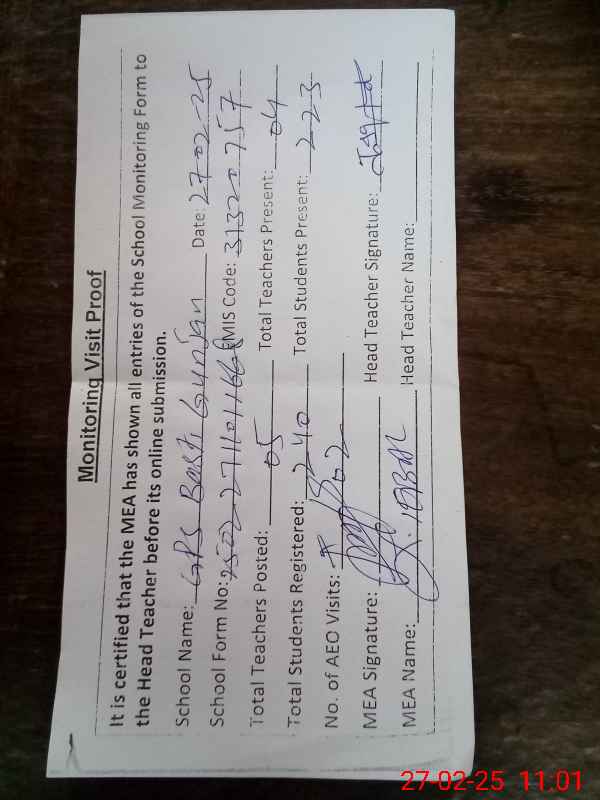 Monitoring Visit Proof
It is certified that the MEA has shown all entries of the School Monitoring Form to
the Head Teacher before its online submission.
School Name: GPS Basti Gunjan Date: 27-02-25
School Form No: EMIS Code: 31320757
Total Teachers Posted: 05 Total Teachers Present: 04
Total Students Registered: 240 Total Students Present: 223
No. of AEO Visits:
MEA Signature: Head Teacher Signature:
MEA Name: Head Teacher Name:
27-02-25 11:01